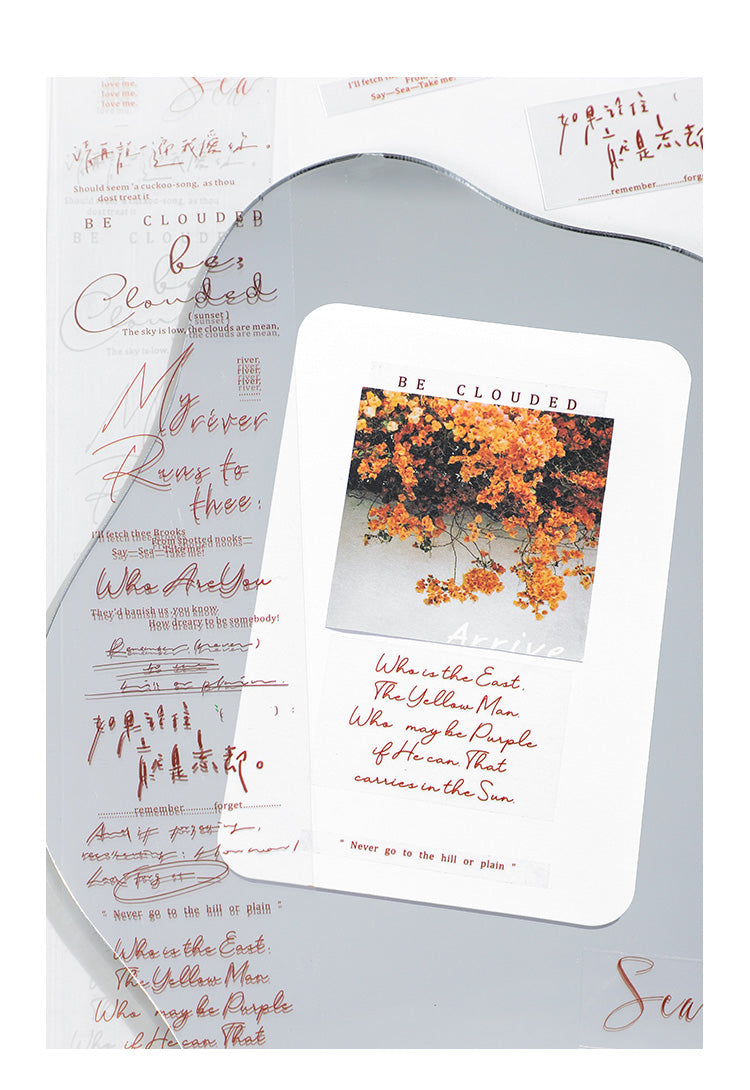 love me.
love me.
love me.
Sea
請再說一遍我愛你。
Should seem 'a cuckoo-song, as thou
dost treat it
BE CLOUDED
be;
Clouded
(sunset)
The sky is low, the clouds are mean,
river,
river,
river,
My river
Runs to
thee:
I'll fetch thee Brooks
From spotted nooks—
Say—Sea—Take me!
Who Are You
They'd banish us you know.
How dreary to be somebody!
Remember (never)
to the
hill or plain.
如果記住 ( ) :
就是忘却。
remember forget
And if
" Never go to the hill or plain "
Who is the East.
The Yellow Man.
Who may be Purple
if He can. That
I'll fetch
From
Say—Sea—Take me!
如果記住 (
就是忘却
remember forg
BE CLOUDED
Arrive
Who is the East.
The Yellow Man.
Who may be Purple
if He can. That
carries in the Sun.
" Never go to the hill or plain "
Sea